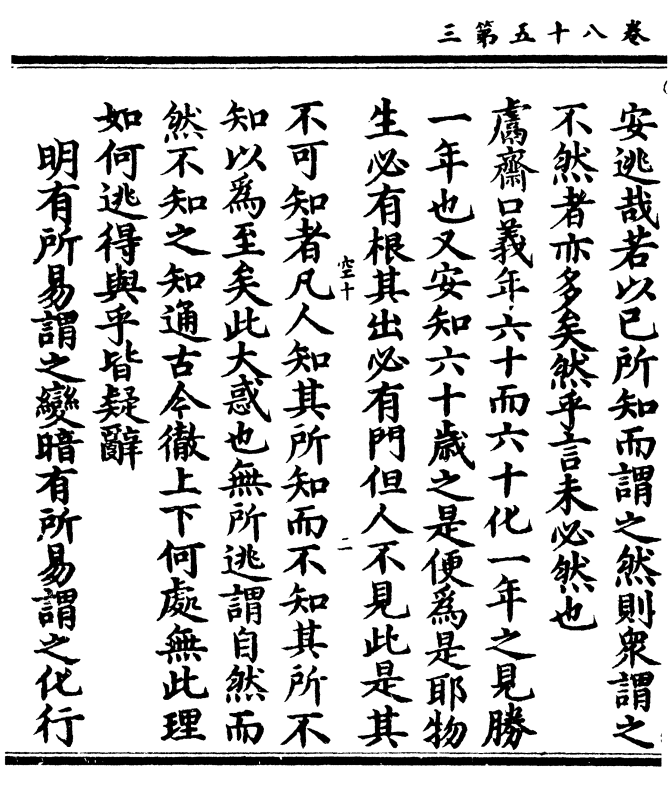 卷八十五第三
安逃哉若以已所知而謂之然則衆謂之
不然者亦多矣然乎言未必然也
鬳齋口義年六十而六十化一年之見勝
一年也又安知六十歲之是便爲是耶物
生必有根其出必有門但人不見此是其
空十
二
不可知者凡人知其所知而不知其所不
知以爲至矣此大惑也無所逃謂自然而
然不知之知通古今徹上下何處無此理
如何逃得與乎皆疑辭
明有所易謂之變暗有所易謂之化行